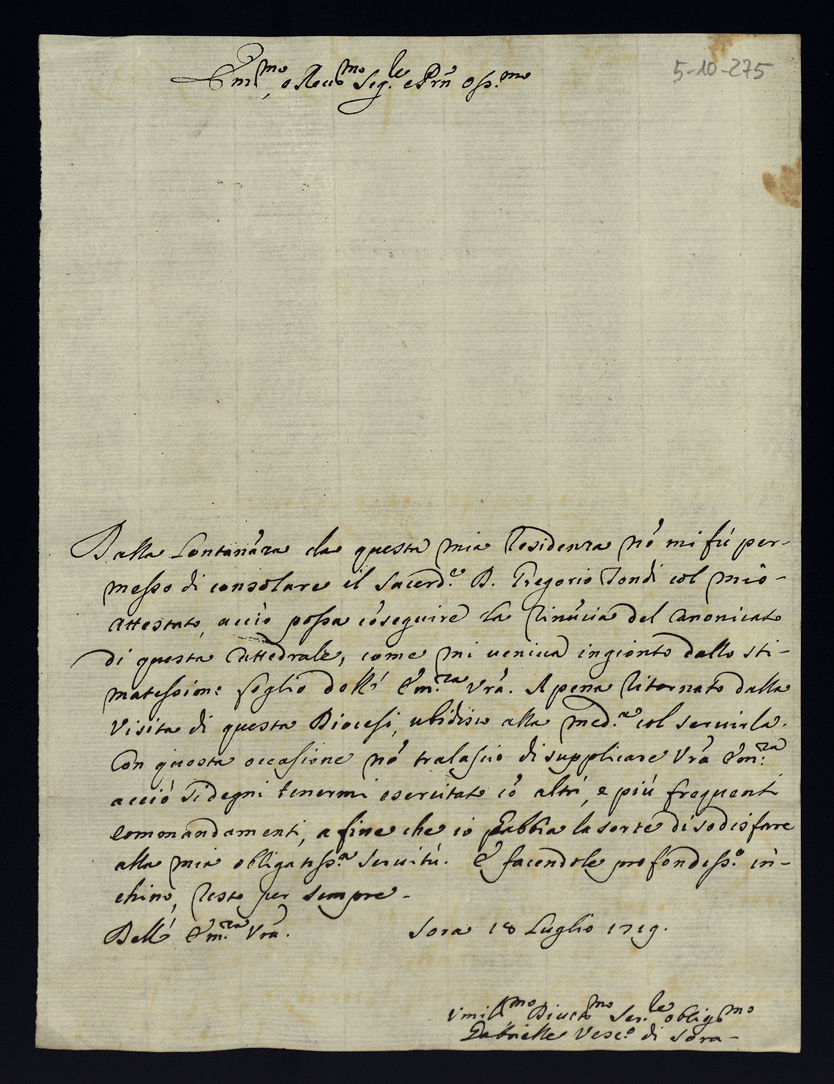 Em.mo, e Reu.mo Sig.le e Prñ Oss.mo
5-10-275
Dalla Lontanãza da questa mia Residenza nõ mi fù per-
messo di consolare il Sacerd.e D. Gregorio Tondi col mio
Attestato, acciò possa cõseguire la Rinũcia del Canonicato
di questa Cattedrale, come mi veniua ingionto dallo sti-
matissimo foglio dell' Em.za Vrã. Apena ritornato dalla
Visita di questa Diocesi, ubidisco alla med.a col seruirla.
Con questa occasione nõ tralascio di supplicare Vrã Em.za
acciò si degni tenermi esercitato cõ altri, e più frequenti
commandamenti, a fine che io habbia la sorte di sodisfare
alla mia obligatiss.a seruitù. E facendole profondiss.o in-
chino, resto per sempre -
Dell' Em.za Vrã.
Sora 18 Luglio 1719.
Vmil.mo Diuot.mo Ser.le oblig.mo
Gabrielle Vesc.o di Sora -